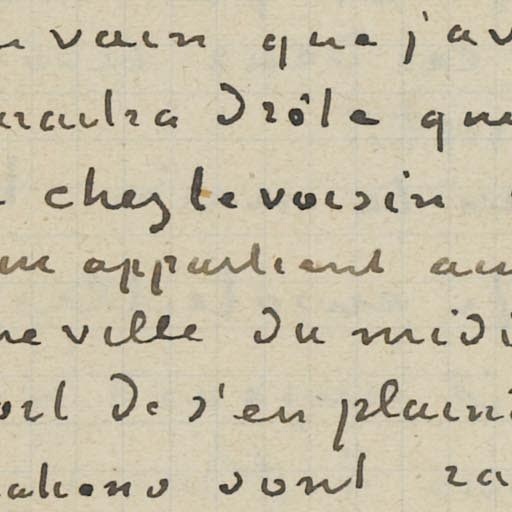 vain que j'av
araitra drôle que
chez le voisin
appartient au
ne ville du midi
ort de s'en plaind
ations sont ra